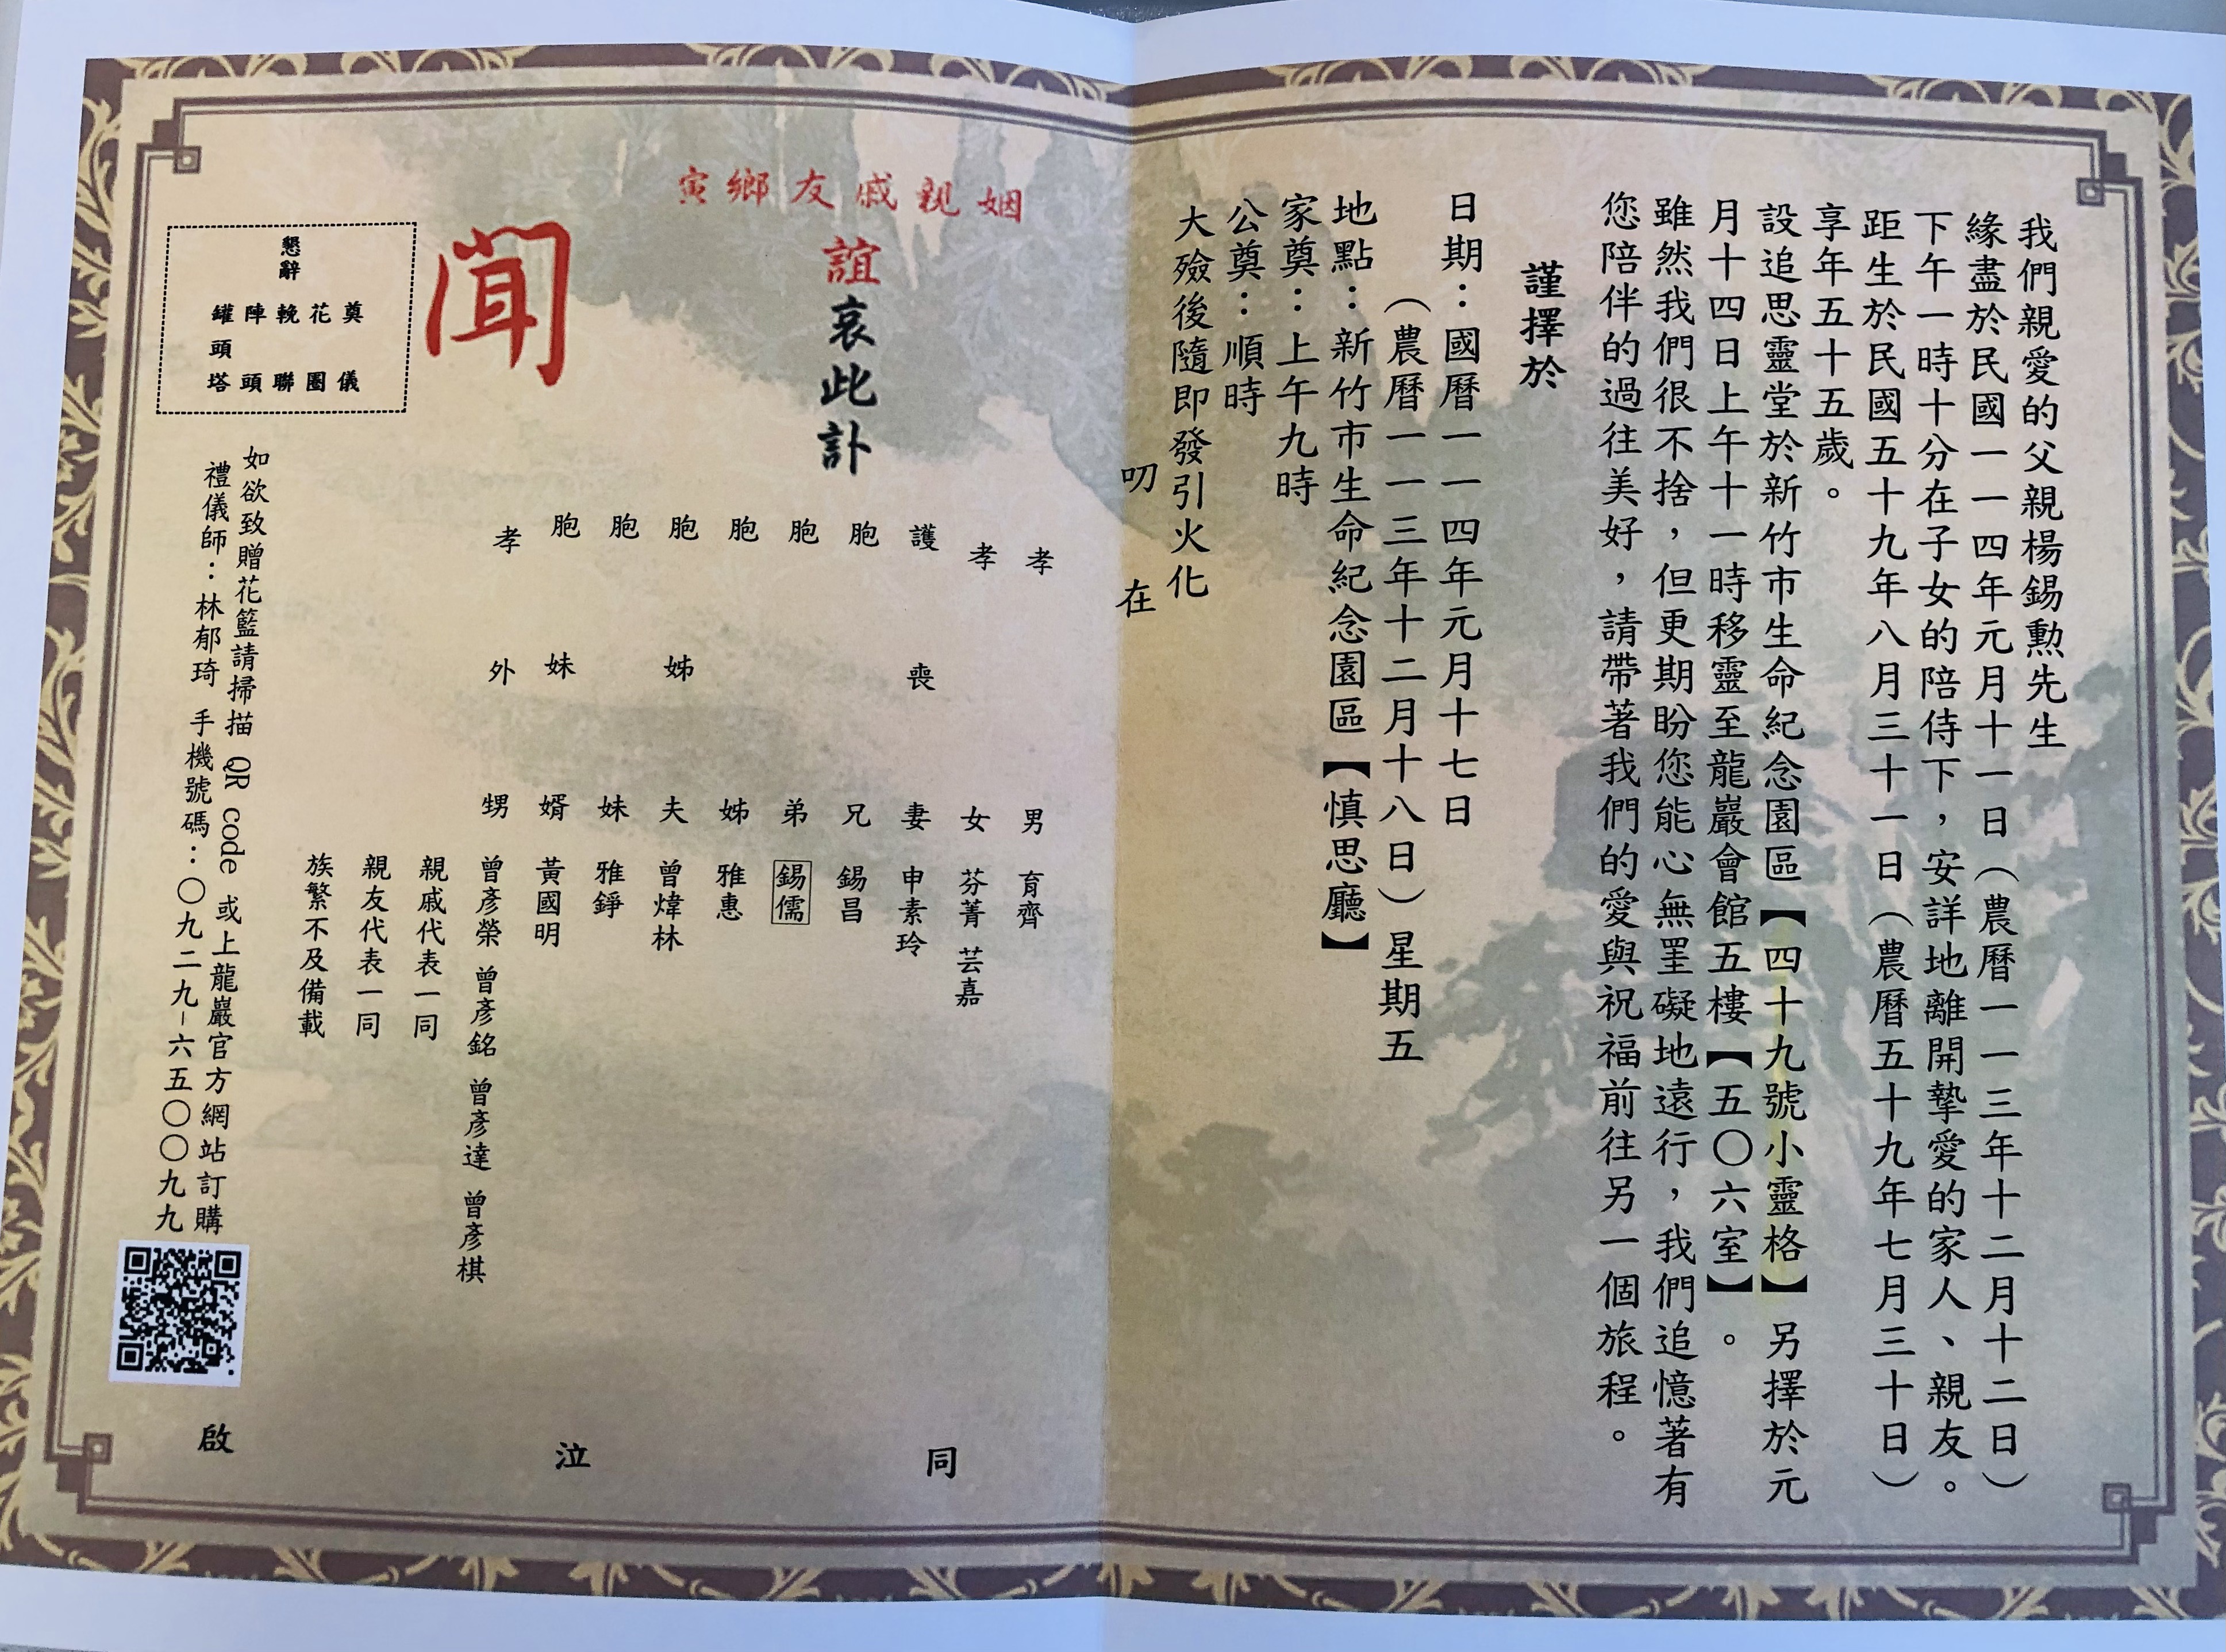 我們親愛的父親楊錫勲先生
緣盡於民國一一四年元月十一日（農曆一一三年十二月十二日）
下午一時十分在子女的陪侍下，安詳地離開摯愛的家人、親友。
距生於民國五十九年八月三十一日（農曆五十九年七月三十日）
享年五十五歲。
設追思靈堂於新竹市生命紀念園區【四十九號小靈格】另擇於元
月十四日上午十一時移靈至龍巖會館五樓【五〇六室】。
雖然我們很不捨，但更期盼您能心無罣礙地遠行，我們追憶著有
您陪伴的過往美好，請帶著我們的愛與祝福前往另一個旅程。
謹擇於
日期：國曆一一四年元月十七日
（農曆一一三年十二月十八日）星期五
地點：新竹市生命紀念園區【慎思廳】
家奠：上午九時
公奠：順時
大殮後隨即發引火化
叨在
姻親戚友鄉寅
誼哀此訃
聞
孝男 育齊
孝女 芬菁 芸嘉
護喪妻 申素玲
胞兄 錫昌
胞弟 錫儒
胞姊 雅惠
胞姊夫 曾煒林
胞妹 雅錚
胞妹婿 黃國明
孝外甥 曾彥榮 曾彥銘 曾彥達 曾彥棋
親戚代表一同
親友代表一同
族繁不及備載
同泣啟
懇辭
奠儀
花圈
輓聯
陣頭
罐頭塔
如欲致贈花籃請掃描 QR code 或上龍巖官方網站訂購
禮儀師：林郁琦 手機號碼：〇九二九-六五〇〇九九